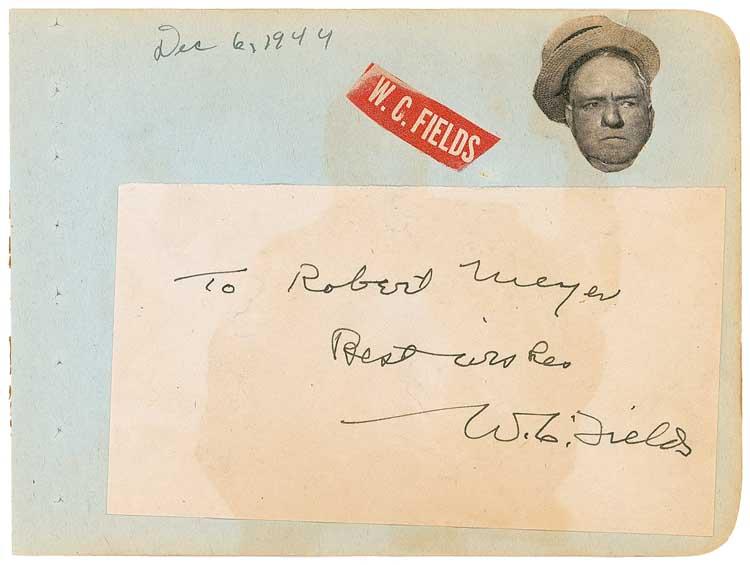 Dec 6, 1944
W. C. FIELDS
To Robert Meyer
Best wishes
W. C. Fields